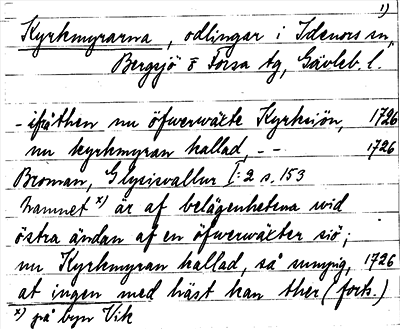 1)
Kyrkmyrarna, odlingar i Idenors sn,
Bergsjö o Forsa tg, Gävleb. l.
- ifrå then nu öfwerwäxte Kyrksiön, 1726
nu kyrkmyran kallad, - - 1726
Broman, Glysisvallur I:2 s. 153
Namnet x) är af belägenhetena wid
östra ändan af en öfwerwäxter siö;
nu Kyrkmyran kallad, så sumpig, 1726
at ingen med häst kan ther (forts.)
x) på byn Vik